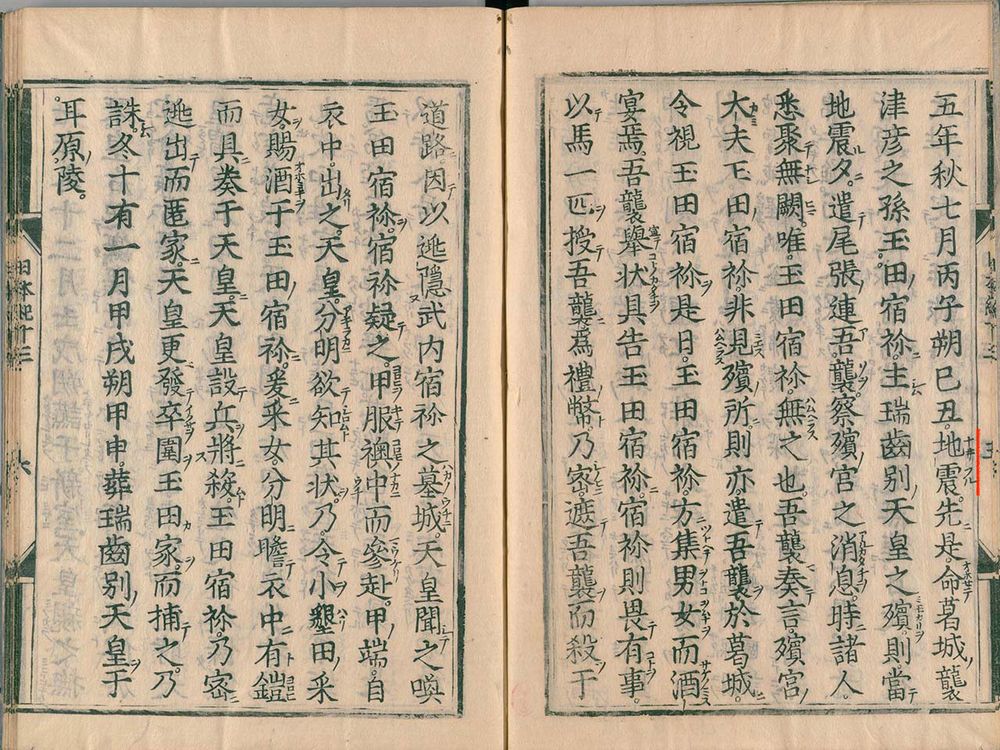 五年秋七月丙子朔己丑。地震。先是。命葛城襲
津彦之孫玉田宿祢。主瑞齒別天皇之殯。則當
地震夕。遣尾張連吾襲。察殯宮之消息。時諸人。
悉聚無闕。唯玉田宿祢。無之也。吾襲奏言。殯宮
大夫玉田宿祢。非見殯所。則亦遣吾襲於葛城。
令視玉田宿祢。是日。玉田宿祢。方集男女而酒
宴焉。吾襲擧状具告玉田宿祢。宿祢則畏有事。
以馬一匹授吾襲爲禮幣。乃密遮吾襲而殺于
道路。因以逃隱武内宿祢之墓城。天皇聞之喚
玉田宿祢。宿祢疑之。甲服襖中而參赴。甲端。自
衣中。出之。天皇。分明欲知其状。乃令小墾田采
女。賜酒于玉田宿祢。爰采女。分明瞻衣中有鎧
而具奏于天皇。天皇設兵將殺。玉田宿祢。乃密
逃出而匿家。天皇更發卒圍玉田家。而捕之。乃
誅。冬十有一月甲戌朔甲申。葬瑞齒別天皇于
耳原陵。